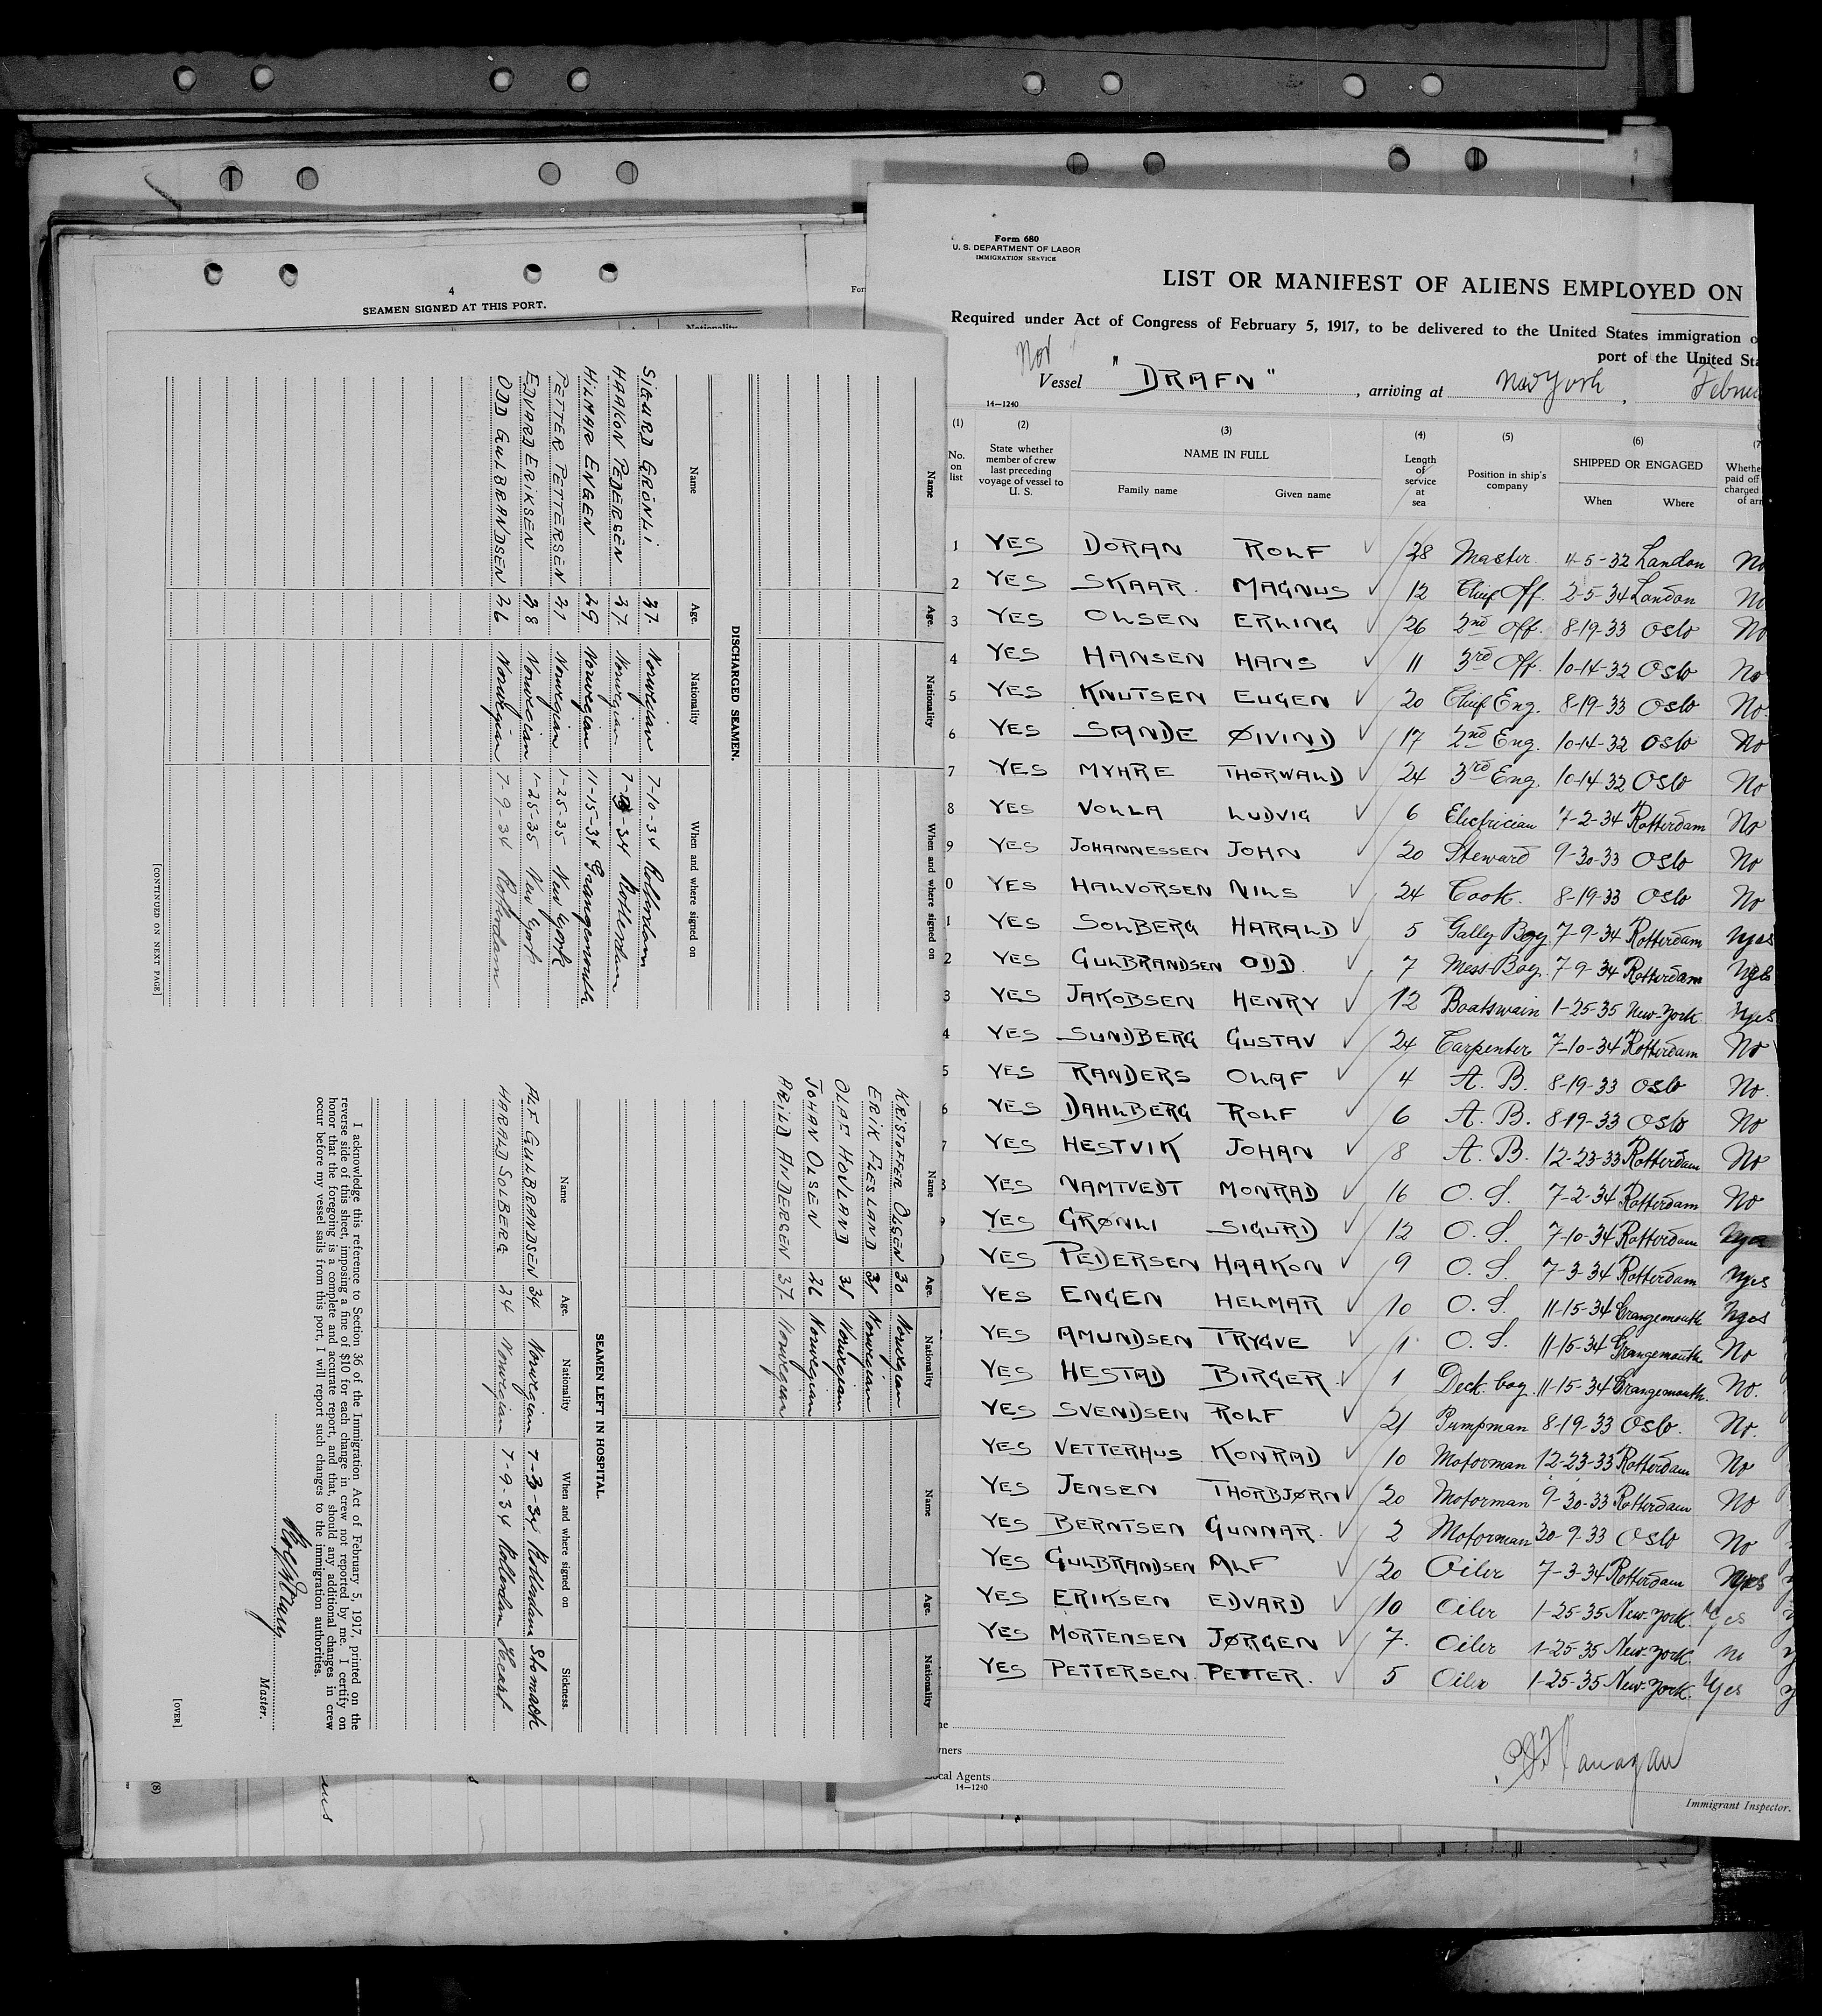 4
SEAMEN SIGNED AT THIS PORT.
Name Age. Nationality When and where signed on
DISCHARGED SEAMEN.
Name Age. Nationality When and where signed on
SIGURD GRÖNLI 37. Norwegian 7-10-34 Rotterdam
HAAKON PEDERSEN 27. Norwegian 34 Rotterdam
HILMAR ENGEN 29 Norwegian 11-15-34 Grangemouth
PETTER PETTERSEN 21 Norwegian 1-25-35 New York
EDVARD ERIKSEN 38 Norwegian 1-25-35 New York
ODD GULBRANDSEN 26 Norwegian 7-9-34 Rotterdam
[CONTINUED ON NEXT PAGE]
Name Age. Nationality Name Age. Nationality
KRISTOFFER OLSEN 30 Norwegian
ERIK FLESLAND 31 Norwegian
OLAF HOVLAND 31 Norwegian
JOHAN OLSEN 26 Norwegian
ARILD ANDERSEN 37. Norwegian
SEAMEN LEFT IN HOSPITAL.
Name Age. Nationality When and where signed on Sickness.
ALF GULBRANDSEN 34 Norwegian 7-3-34 Rotterdam Stomach
HARALD SOLBERG 24 Norwegian 7-9-34 Rotterdam Heart
I acknowledge this reference to Section 36 of the Immigration Act of February 5, 1917, printed on the
reverse side of this sheet, imposing a fine of $10 for each change in crew not reported by me. I certify on
honor that the foregoing is a complete and accurate report, and that, should any additional changes in crew
occur before my vessel sails from this port, I will report such changes to the immigration authorities.
Master.
[OVER]
(8)
Form 680
U. S. DEPARTMENT OF LABOR
IMMIGRATION SERVICE
LIST OR MANIFEST OF ALIENS EMPLOYED ON
Required under Act of Congress of February 5, 1917, to be delivered to the United States immigration o
port of the United Sta
Nor
Vessel "DRAFN", arriving at New York, Febru
14—1240
(1) (2) (3) (4) (5) (6) (7
No. on list State whether member of crew last preceding voyage of vessel to U. S. NAME IN FULL Length of service at sea Position in ship's company SHIPPED OR ENGAGED Whethe paid off charged of arr
Family name Given name When Where
1 YES DORAN ROLF 28 Master 4-5-32 London No
2 YES SKAAR. MAGNUS 12 Chief Off. 2-5-34 London No
3 YES OLSEN ERLING 26 2nd Off. 8-19-33 Oslo No
4 YES HANSEN HANS 11 3rd Off. 10-14-32 Oslo No
5 YES KNUTSEN EUGEN 20 Chief Eng. 8-19-33 Oslo No.
6 YES SANDE ØIVIND 17 2nd Eng. 10-14-32 Oslo No
7 YES MYHRE THORWALD 24 3rd Eng. 10-14-32 Oslo No
8 YES VOLLA LUDVIG 6 Electrician 7-2-34 Rotterdam No
9 YES JOHANNESSEN JOHN 20 Steward 9-30-33 Oslo No
0 YES HALVORSEN NILS 24 Cook. 8-19-33 Oslo No
1 YES SOLBERG HARALD 5 Gally Boy 7-9-34 Rotterdam yes
2 YES GULBRANDSEN ODD. 7 Mess-Boy. 7-9-34 Rotterdam yes
3 YES JAKOBSEN HENRY 12 Boatswain 1-25-35 New-York yes
4 YES SUNDBERG GUSTAV 24 Carpenter 7-10-34 Rotterdam No
5 YES RANDERS OLAF 4 A. B. 8-19-33 Oslo No.
6 YES DAHLBERG ROLF 6 A. B. 8-19-33 Oslo No
7 YES HESTVIK JOHAN 8 A. B. 12-23-33 Rotterdam No
8 YES NAMTVEDT MONRAD 16 O. S. 7-2-34 Rotterdam No
9 YES GRØNLI SIGURD 12 O. S. 7-10-34 Rotterdam
YES PEDERSEN HAAKON 9 O. S. 7-3-34 Rotterdam yes
YES ENGEN HELMAR 10 O. S. 11-15-34 Grangemouth yes
YES AMUNDSEN TRYGVE 1 O. S. 11-15-34 Grangemouth. No
YES HESTAD BIRGER. 1 Deck-boy. 11-15-34 Grangemouth. No.
YES SVENDSEN ROLF 21 Pumpman 8-19-33 Oslo. No.
YES VETTERHUS KONRAD 10 Motorman 12-23-33 Rotterdam No
YES JENSEN THORBJØRN 20 Motorman 9-30-33 Rotterdam No
YES BERNTSEN GUNNAR. 2 Motorman 30-9-33 Oslo No
YES GULBRANDSEN ALF 20 Oiler 7-3-34 Rotterdam yes
YES ERIKSEN EDVARD 10 Oiler 1-25-35 New-York. Yes
YES MORTENSEN JØRGEN 7. Oiler 1-25-35 New-York. no
YES PETTERSEN. PETTER. 5 Oiler 1-25-35 New-York. Yes
ne
wners
ocal Agents
14—1240
Flanagan
Immigrant Inspector.